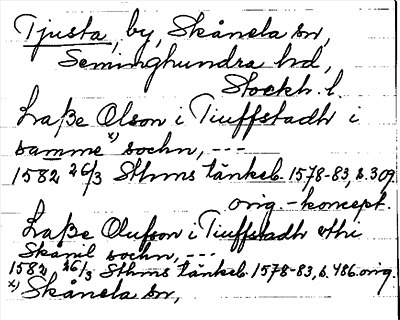 Tjusta, by, Skånela sn,
Seminghundra hd,
Stockh. l.
Laße Olson i Tiuffstadh i
samme x) sochn, ---
1582 26/3 Sthms tänkeb. 1578-83, s. 309
orig.-koncept.
Laße Olufson i Tiuffstadh uthi
Skånil sochn, ---
1582 26/3 Sthms tänkeb. 1578-83, s. 486. orig.
x) Skånela sn,